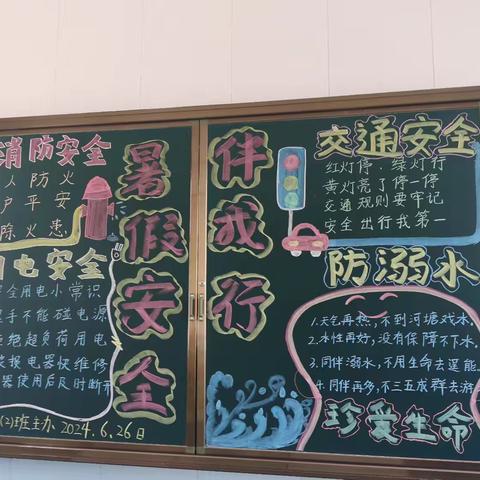 消防安全
人防火
户平安
除火患
用电安全
全用电小常识
手不能碰电源
拒绝超负荷用电
电器快维修
器使用后及时断开
(2)班主办 2024.6.26日
暑假安全
伴我行
交通安全
红灯停，绿灯行
黄灯亮了停一停
交通规则要牢记
安全出行我第一
防溺水
1.天气再热，不到河塘戏水
2.水性再好，没有保障不下水
3.同伴溺水，不用生命去逞能
4.同伴再多，不三五成群去游
珍爱生命